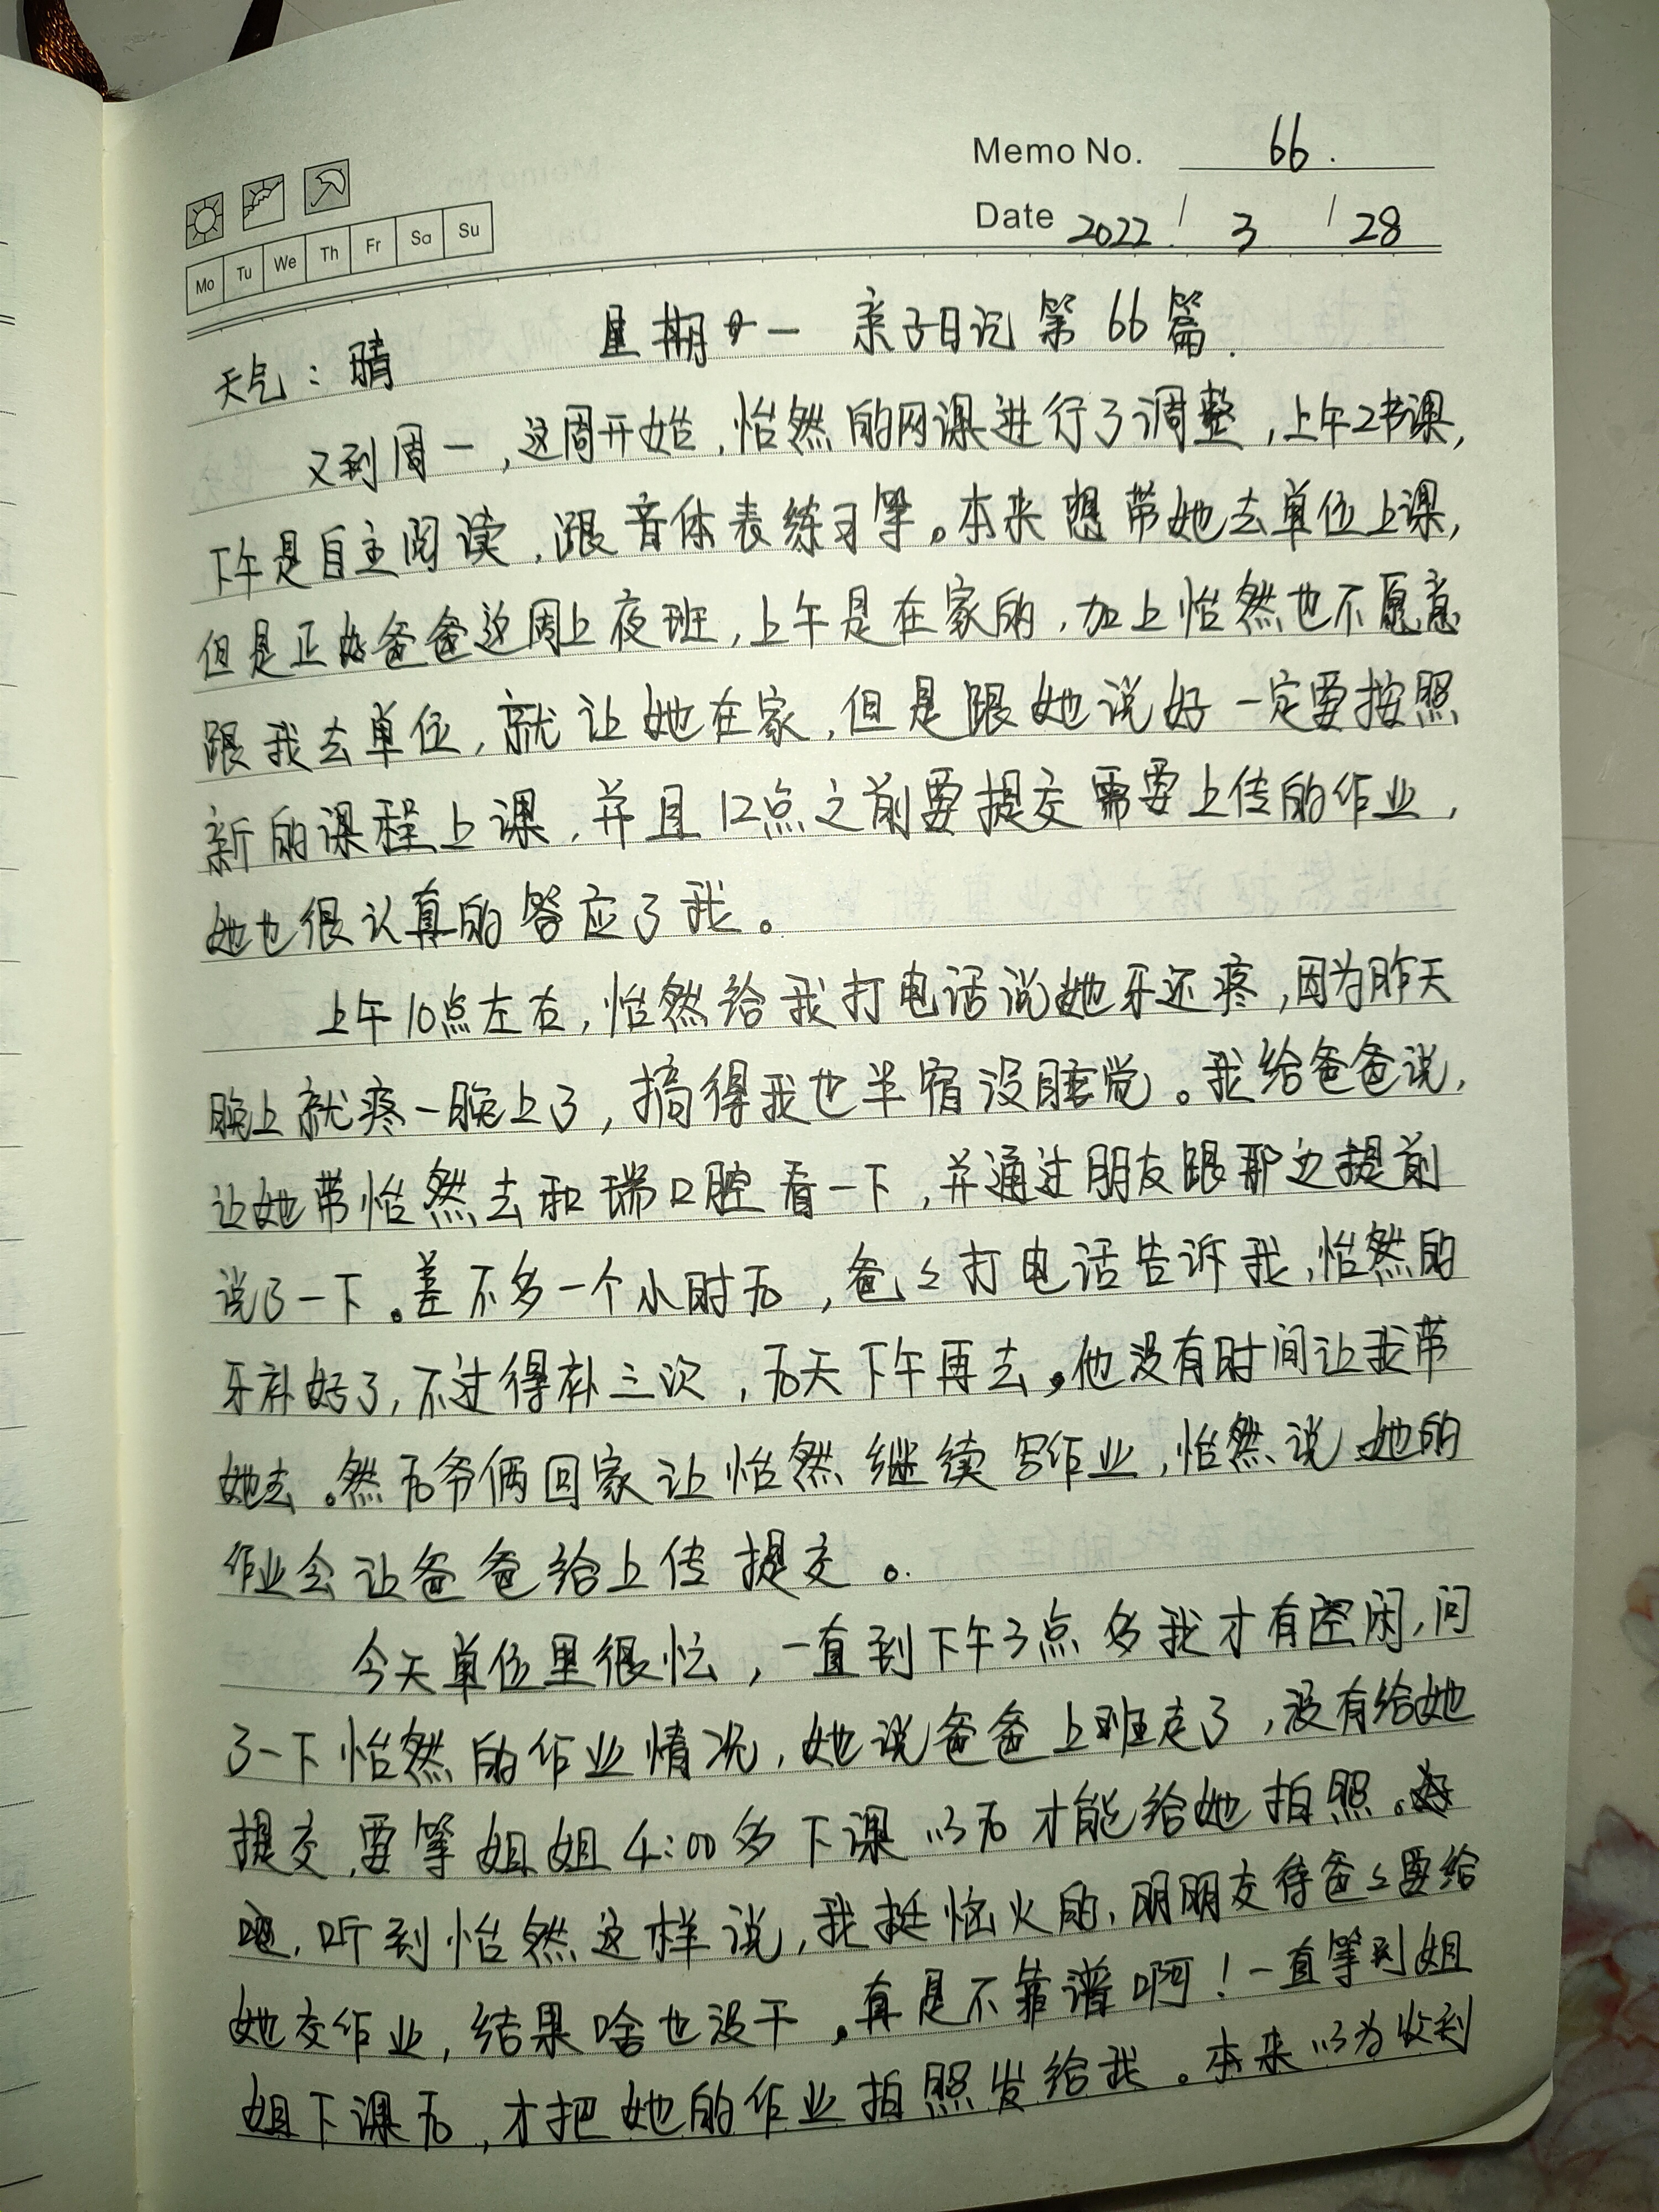 Memo No. 66.
Date 2022 / 3 / 28
Mo Tu We Th Fr Sa Su
天气：晴 星期一 亲子日记第66篇.
又到周一，这周开始，怡然的网课进行了调整，上午2节课，
下午是自主阅读，跟音体表练习等。本来想带她去单位上课，
但是正好爸爸这周上夜班，上午是在家的，加上怡然也不愿意
跟我去单位，就让她在家，但是跟她说好一定要按照
新的课程上课，并且12点之前要提交需要上传的作业，
她也很认真的答应了我。
上午10点左右，怡然给我打电话说她牙还疼，因为昨天
晚上就疼一晚上了，搞得我也半宿没睡觉。我给爸爸说，
让她带怡然去和瑞口腔看一下，并通过朋友跟那边提前
说了一下。差不多一个小时后，爸々打电话告诉我，怡然的
牙补好了，不过得补三次，后天下午再去。他没有时间让我带
她去。然后爷俩回家让怡然继续写作业，怡然说她的
作业会让爸爸给上传提交。
今天单位里很忙，一直到下午3点多我才有空闲，问
了一下怡然的作业情况，她说爸爸上班走了，没有给她
提交，要等姐姐4:00多下课以后才能给她拍照。
听到怡然这样说，我挺恼火的，明明交待爸々要给
她交作业，结果啥也没干，真是不靠谱啊！一直等到姐
姐下课后，才把她的作业拍照发给我。本来以为收到